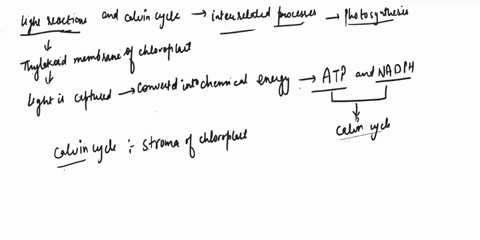 Light reactions and calvin cycle → interrelated processes → Photosynthesis
↓
Thylakoid membrane of chloroplast
↓
Light is captured → Converted into chemical energy → ATP and NADPH
↓
Calvin cycle
Calvin cycle :- stroma of chloroplast